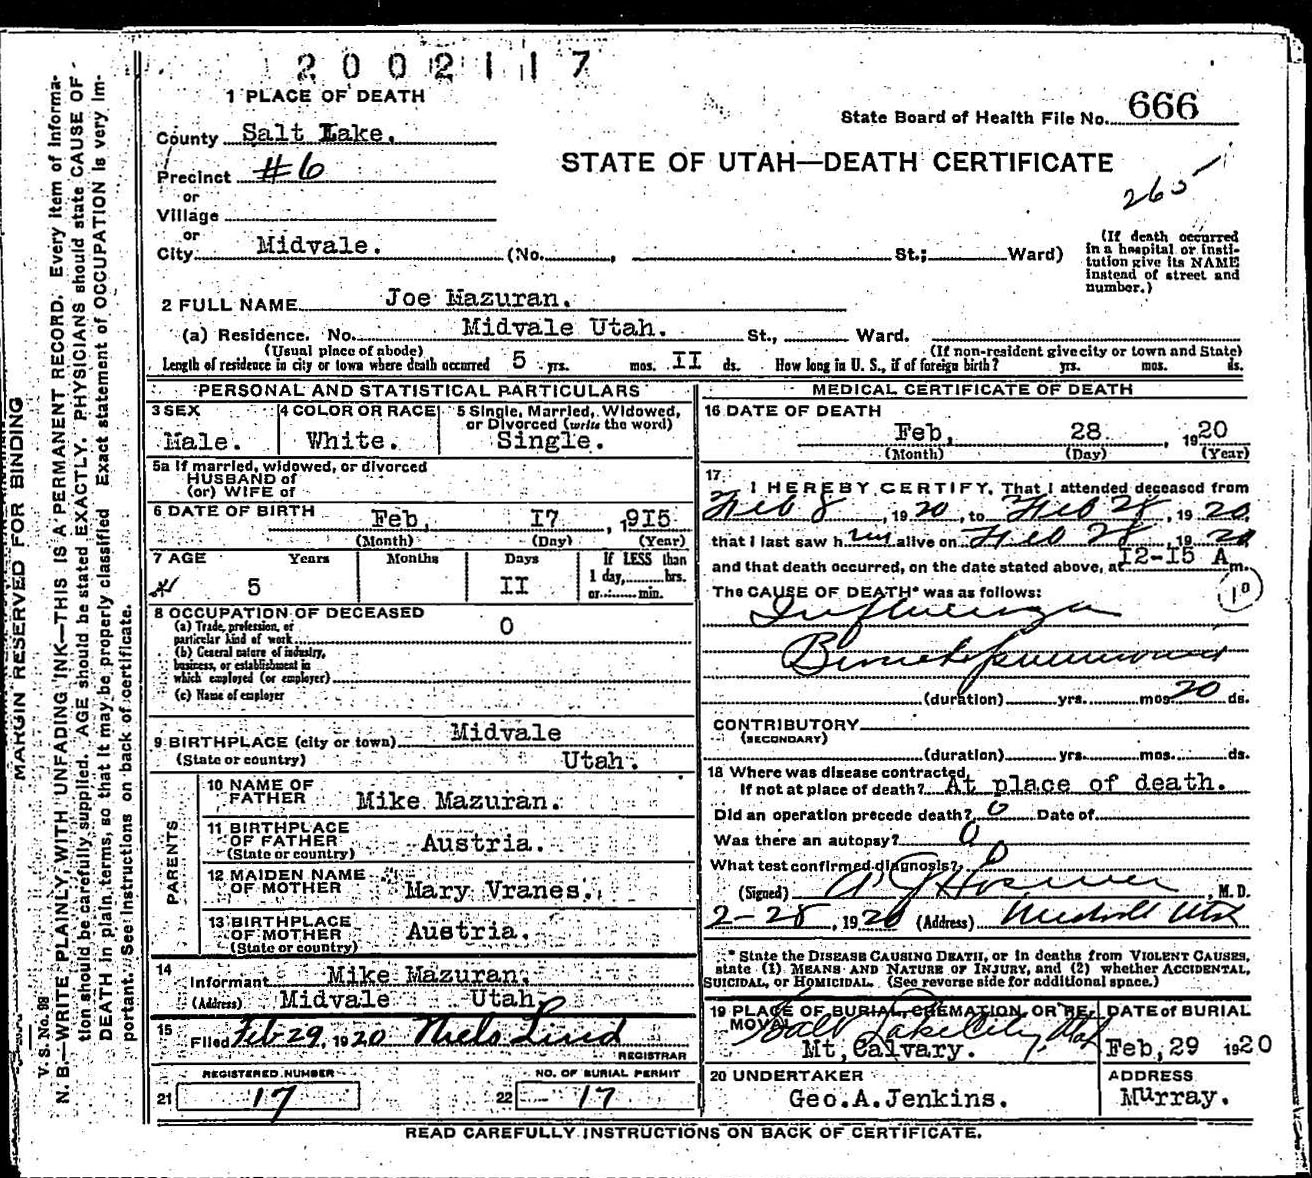 2002117
1 PLACE OF DEATH
State Board of Health File No. 666
County Salt Lake.
STATE OF UTAH—DEATH CERTIFICATE
Precinct #6
265
or
Village
or
City Midvale. (No. , St.; Ward)
(If death occurred in a hospital or institution give its NAME instead of street and number.)
2 FULL NAME Joe Mazuran.
(a) Residence. No. Midvale Utah. St., Ward.
(Usual place of abode) (If non-resident give city or town and State)
Length of residence in city or town where death occurred 5 yrs. mos. II ds. How long in U. S., if of foreign birth? yrs. mos. ds.
PERSONAL AND STATISTICAL PARTICULARS
3 SEX
Male.
4 COLOR OR RACE
White.
5 Single, Married, Widowed, or Divorced (write the word)
Single.
5a If married, widowed, or divorced
HUSBAND of
(or) WIFE of
6 DATE OF BIRTH Feb, I7 , 1915
(Month) (Day) (Year)
7 AGE Years Months Days If LESS than
5 II 1 day, hrs.
or min.
8 OCCUPATION OF DECEASED
(a) Trade, profession, or
particular kind of work 0
(b) General nature of industry,
business, or establishment in
which employed (or employer)
(c) Name of employer
9 BIRTHPLACE (city or town) Midvale
(State or country) Utah.
PARENTS
10 NAME OF FATHER Mike Mazuran.
11 BIRTHPLACE OF FATHER (State or country) Austria.
12 MAIDEN NAME OF MOTHER Mary Vranes.
13 BIRTHPLACE OF MOTHER (State or country) Austria.
14
Informant Mike Mazuran.
(Address) Midvale Utah.
15
Filed Feb 29, 1920 Niels Lind
REGISTRAR
REGISTERED NUMBER
21 17
NO. OF BURIAL PERMIT
22 17
MEDICAL CERTIFICATE OF DEATH
16 DATE OF DEATH
Feb, 28 , 1920
(Month) (Day) (Year)
17
I HEREBY CERTIFY, That I attended deceased from
Feb 8 , 1920, to Feb 28 , 1920,
that I last saw him alive on Feb 28 , 1920
and that death occurred, on the date stated above, at I2-I5 A m.
The CAUSE OF DEATH* was as follows:
10
Influenza
Bronchopneumonia
(duration) yrs. mos. 20 ds.
CONTRIBUTORY
(SECONDARY)
(duration) yrs. mos. ds.
18 Where was disease contracted
If not at place of death? At place of death.
Did an operation precede death? 0 Date of
Was there an autopsy? 0
What test confirmed diagnosis? 0
(Signed) , M. D.
2-28, 1920 (Address) Midvale Utah
* State the DISEASE CAUSING DEATH, or in deaths from VIOLENT CAUSES,
state (1) MEANS AND NATURE OF INJURY, and (2) whether ACCIDENTAL,
SUICIDAL, or HOMICIDAL. (See reverse side for additional space.)
19 PLACE OF BURIAL, CREMATION, OR REMOVAL
Salt Lake City, Utah
Mt, Calvary.
DATE of BURIAL
Feb, 29 1920
20 UNDERTAKER
Geo.A.Jenkins.
ADDRESS
Murray.
READ CAREFULLY INSTRUCTIONS ON BACK OF CERTIFICATE.
MARGIN RESERVED FOR BINDING
V. S. No. 98
N. B.—WRITE PLAINLY, WITH UNFADING INK—THIS IS A PERMANENT RECORD. Every item of informa-
tion should be carefully supplied. AGE should be stated EXACTLY. PHYSICIANS should state CAUSE OF
DEATH in plain terms, so that it may be properly classified. Exact statement of OCCUPATION is very im-
portant. See instructions on back of certificate.